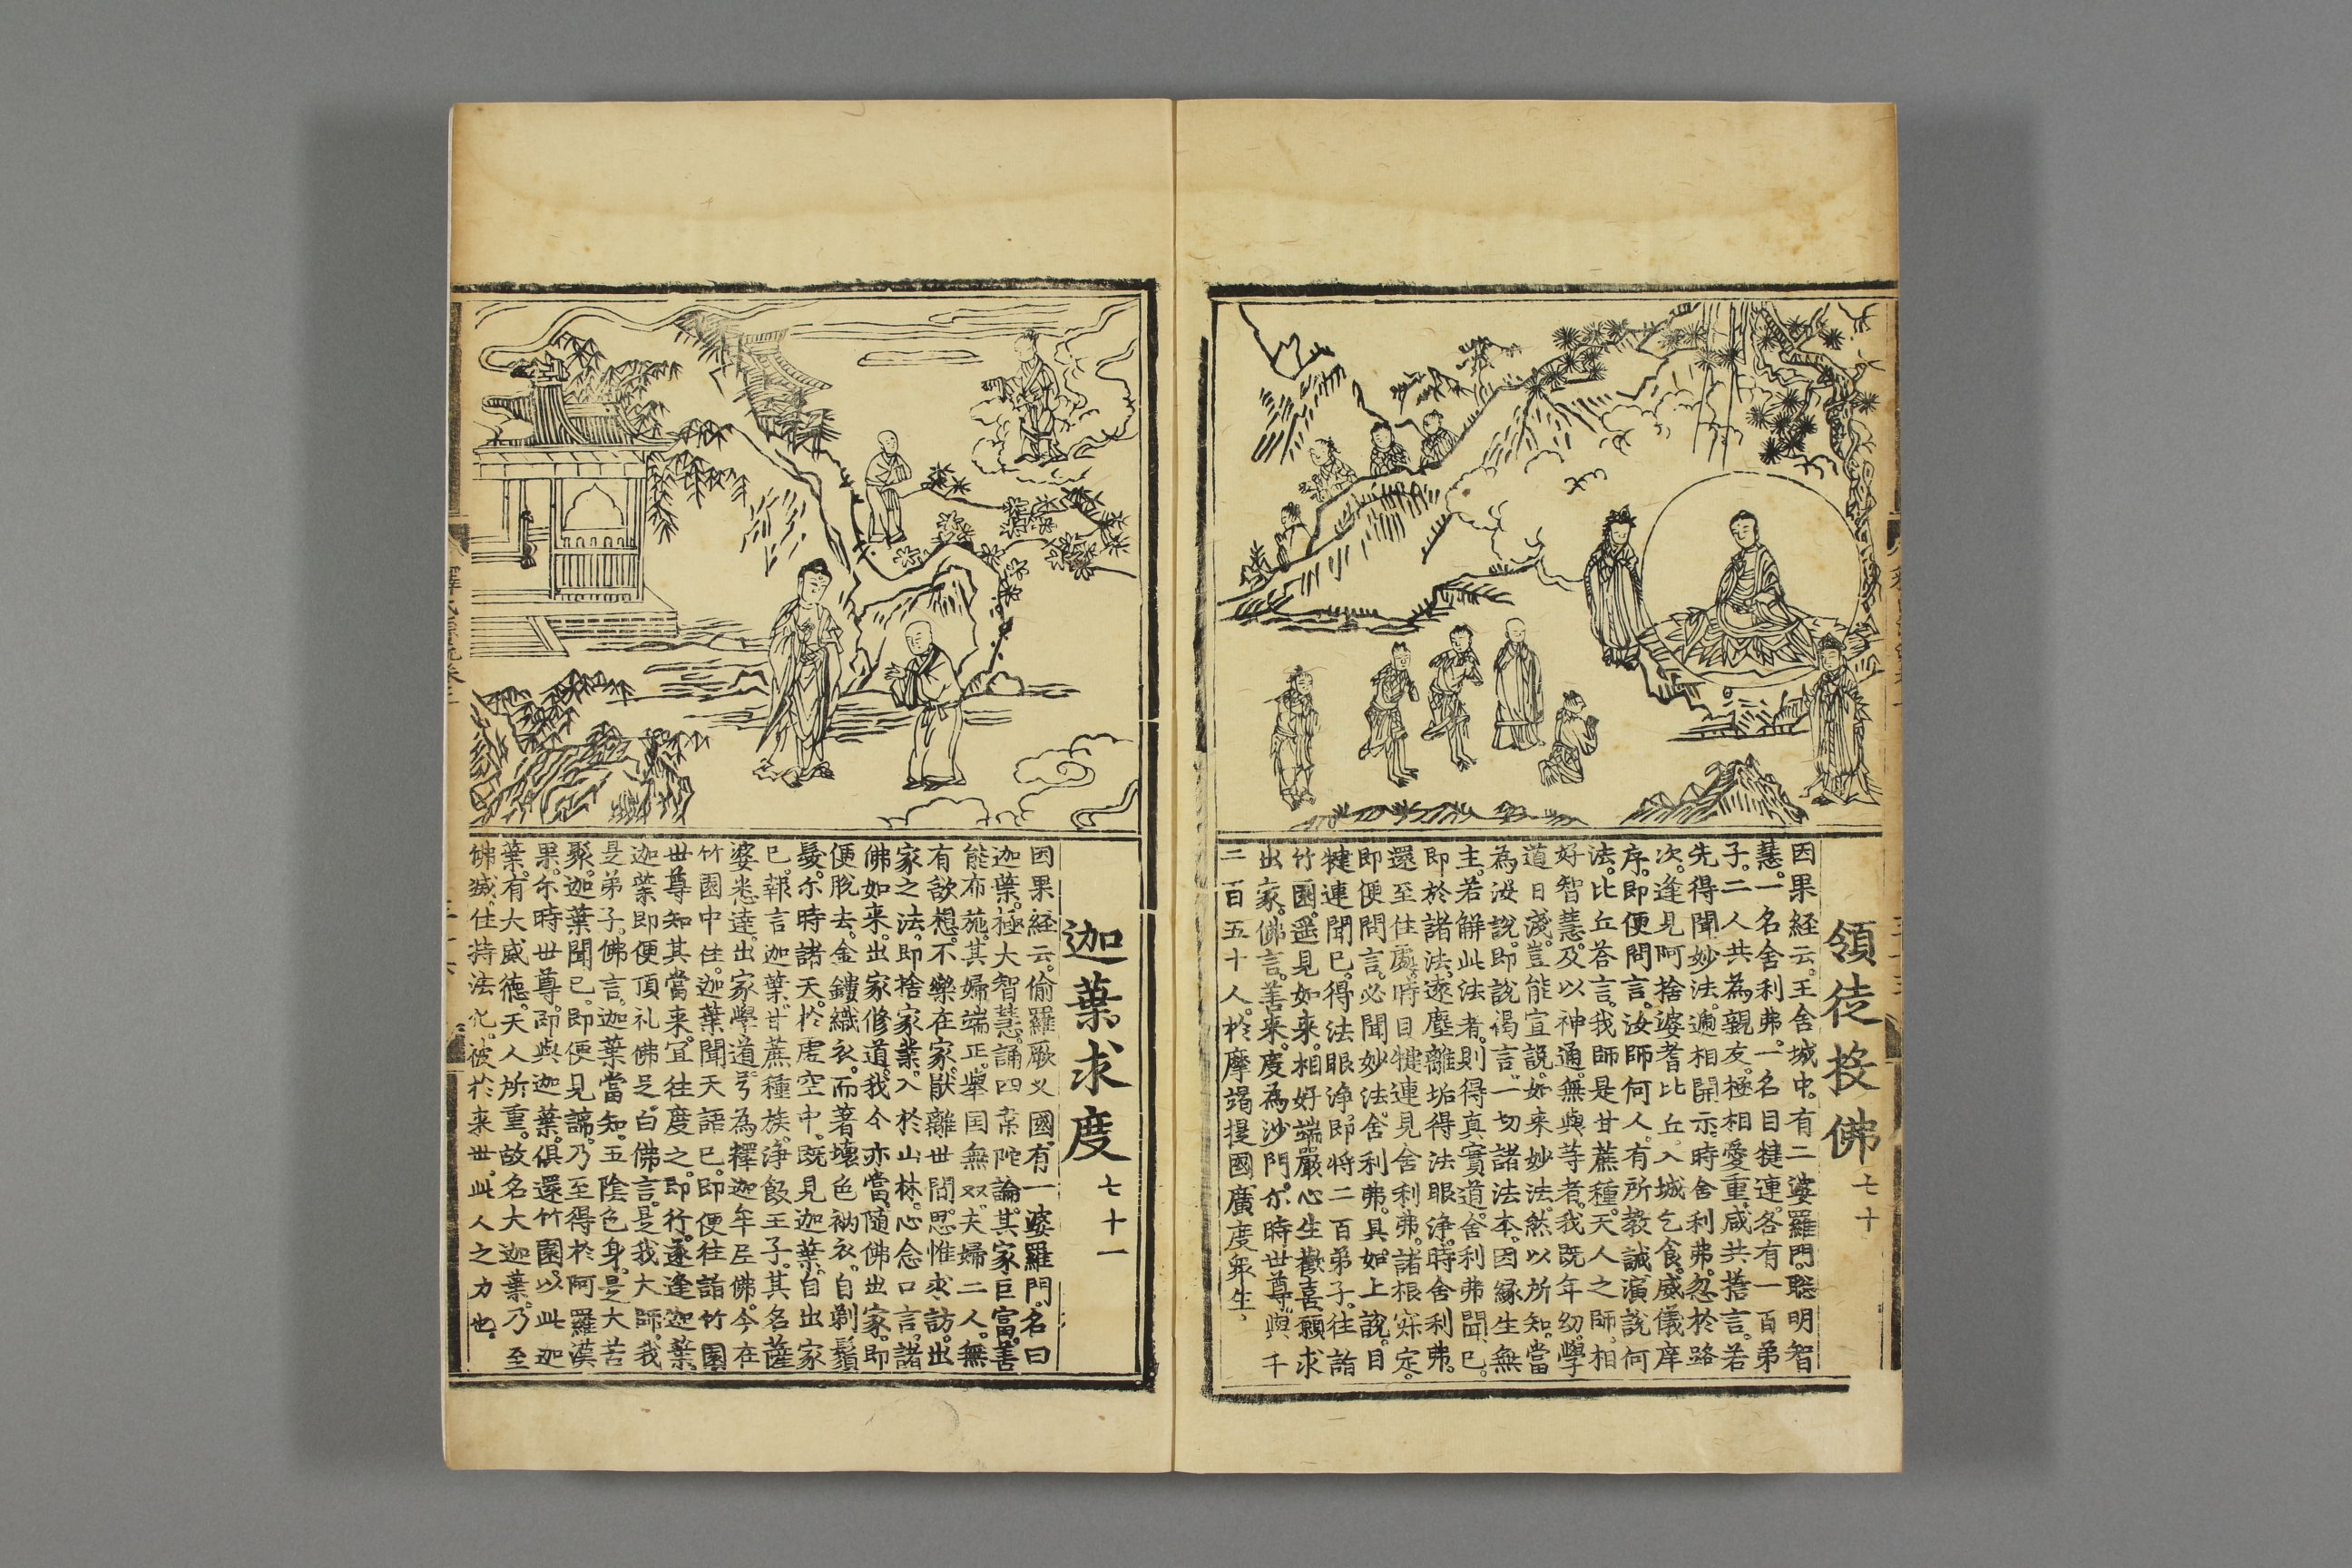 領徒投佛 七十
因果経云。王舍城中。有二婆羅門。聡明智
慧。一名舍利弗。一名目揵連。各有一百弟
子。二人共為親友。極相愛重。咸共捨言。若
先得聞妙法。逓相開示。時舍利弗。忽於路
次。逢見阿捨婆耆比丘。入城乞食。威儀庠
序。即便問言。汝師何人。有所教誡。演說何
法。比丘荅言。我師是甘蔗種。天人之師。相
好智慧。及以神通。無與等者。我既年㓜。學
道日淺。豈能宣說。如来妙法。然以所知。當
為汝說。即說偈言。一切諸法本。因緣生無
主。若解此法者。則得真實道。舍利弗聞已。
即於諸法。逺塵離垢得法眼淨。時舍利弗。
還至住處。時目犍連見舍利弗。諸根寂定。
即便問言。必聞妙法。舍利弗。具如上說。目
犍連聞已。得法眼淨。即将二百弟子。往詣
竹園。遥見如来。相好端嚴。心生歡喜。願求
出家。佛言。善来。度為沙門。尒時世尊與千
二百五十人。於摩竭提國廣度衆生。
迦葉求度 七十一
因果経云。偷羅厥义國。有一婆羅門。名曰
迦葉。極大智慧。誦四韋陀論。其家巨富。善
能布施。其婦端正。舉国無双。夫婦二人。無
有欲想。不樂在家。猒離世間。思惟求訪。出
家之法。即捨家業。入於山林。心念口言。諸
佛如来。出家修道。我今亦當。隨佛出家。即
便脫去。金鏤織衣。而著壞色衲衣。自剃鬚
髮。尒時諸天。於虛空中。既見迦葉。自出家
已。報言迦葉。甘蔗種族。淨飯王子。其名薩
婆悉達。出家學道。号為釋迦牟尼佛。今在
竹園中住。迦葉聞天語已。即便往詣竹園
世尊知其當来。冝往度之。即行。逐逢迦葉
迦葉即便頂礼佛足。白佛言。是我大師。我
是弟子。佛言。迦葉當知。五陰色身。是大苦
聚。迦葉聞已。即便見諦。乃至得於阿羅漢
果。尒時世尊。即與迦葉。俱還竹園。以此迦
葉。有大威徳。天人所重。故名大迦葉。乃至
佛滅。住持法化。被於来世。此人之力也。